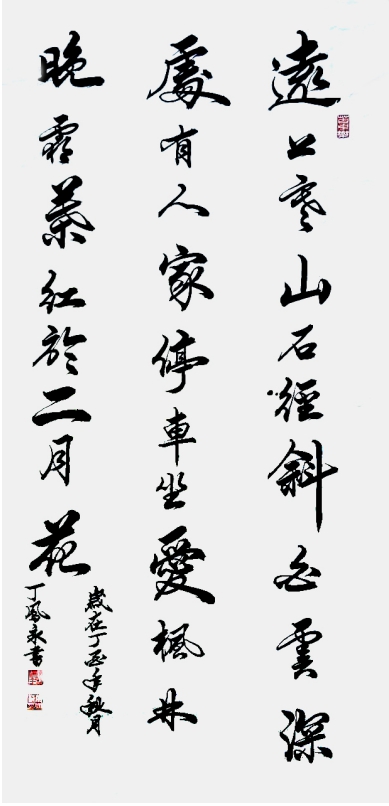 遠上寒山石徑斜白雲深
處有人家停車坐愛楓林
晚霜葉紅於二月花
歲在丁酉年秋月
丁鳳永書